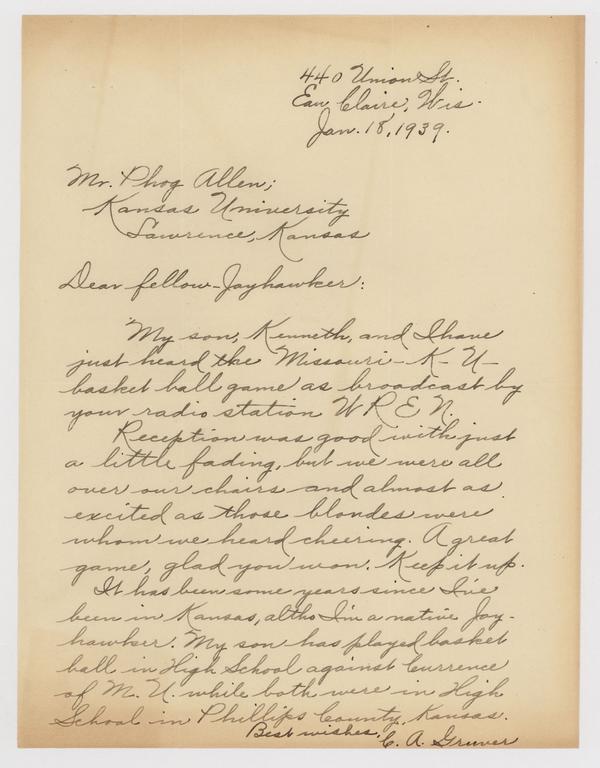 440 Union St.
Eau Claire, Wis.
Jan. 18, 1939.
Mr. Phog Allen;
Kansas University
Lawrence, Kansas
Dear fellow-Jayhawker:
My son, Kenneth, and I have
just heard the Missouri-K-U-
basket ball game as broadcast by
your radio station W R E N.
Reception was good with just
a little fading, but we were all
over our chairs and almost as
excited as those blondes were
whom we heard cheering. A great
game, glad you won. Keep it up.
It has been some years since I've
been in Kansas, altho I'm a native Jay-
hawker. My son has played basket
ball in High School against Currence
of M. U. while both were in High
School in Phillips County, Kansas.
Best wishes,
C. A. Gruver